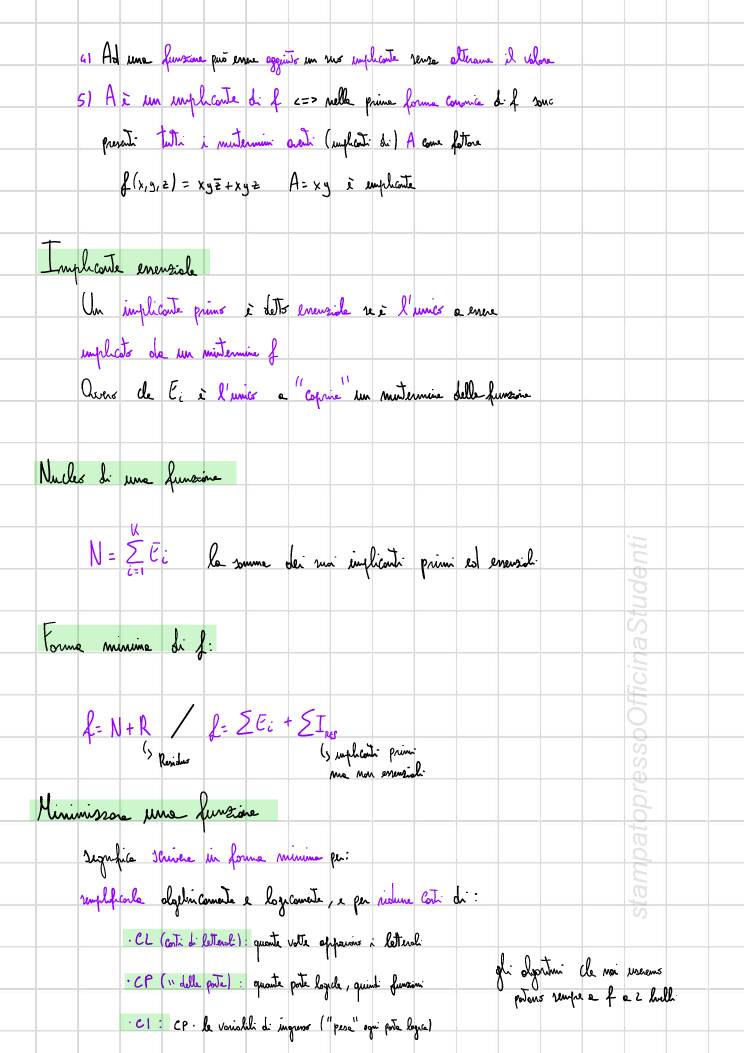 4) Ad una funzione può essere aggiunto un suo implicante senza alterarne il valore
5) A è un implicante di f <=> nella prima forma canonica di f sono
presenti tutti i mintermini aventi (implicanti di) A come fattore
f(x,y,z) = xyz̄+xyz A=xy è implicante
Implicante essenziale
Un implicante primo è detto essenziale se è l'unico a essere
implicato da un mintermine f
Ovvero che Ei è l'unico a "coprire" un mintermine della funzione
Nucleo di una funzione
N = ∑ᵢ₌₁ᴷ Ei la somma dei suoi implicanti primi ed essenziali
Forma minima di f:
f= N+R / f= ∑Ei + ∑I
↳ Residuo
↳ implicanti primi
ma non essenziali
Minimizzare una funzione
significa scrivere in forma minima per:
semplificarla algebricamente e logicamente, e per ridurre costi di:
· CL (costi di letterali): quante volte appaiono i letterali
· CP (" delle porte): quante porte logiche, quindi funzioni
· CI: CP · le variabili di ingresso ("pesa" ogni porta logica)
gli algoritmi che noi useremo
portano sempre a f a 2 livelli
stampatopressoOfficinaStudenti